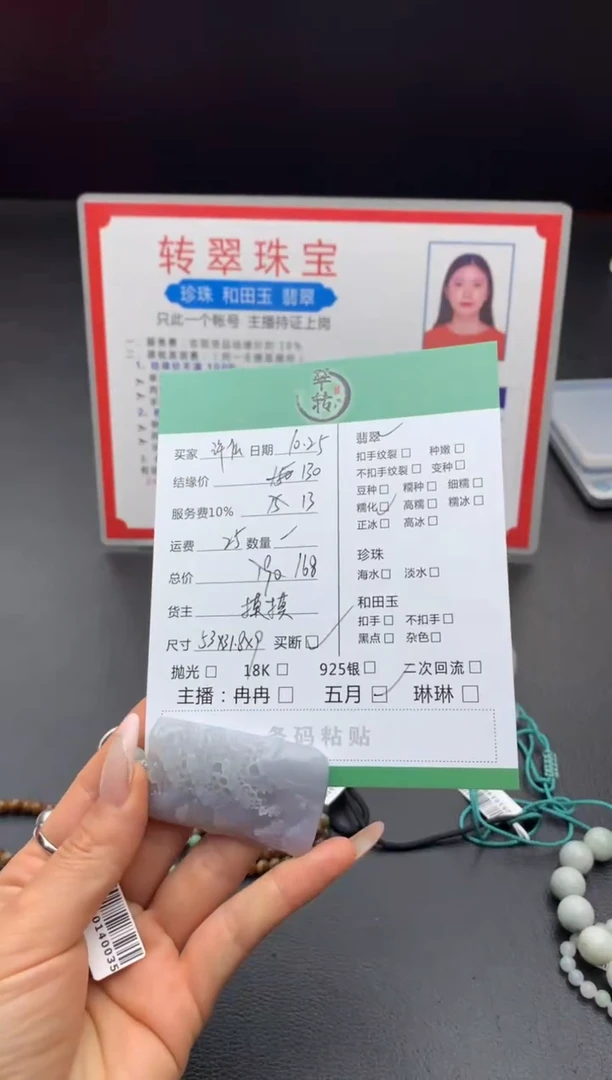 转翠珠宝
珍珠 和田玉 翡翠
只此一个账号 主播持证上岗
翠转
买家 日期 10.25
结缘价 130
服务费10% 13
运费 25 数量
总价 168
货主 摸摸
尺寸 53X31.8X9 买断
翡翠
扣手纹裂 种嫩
不扣手纹裂 变种
豆种 糯种 细糯
糯化 高糯 糯冰
正冰 高冰
珍珠
海水 淡水
和田玉
扣手 不扣手
黑点 杂色
抛光 18K 925银 二次回流
主播：冉冉 五月 琳琳
条码粘贴
0140035